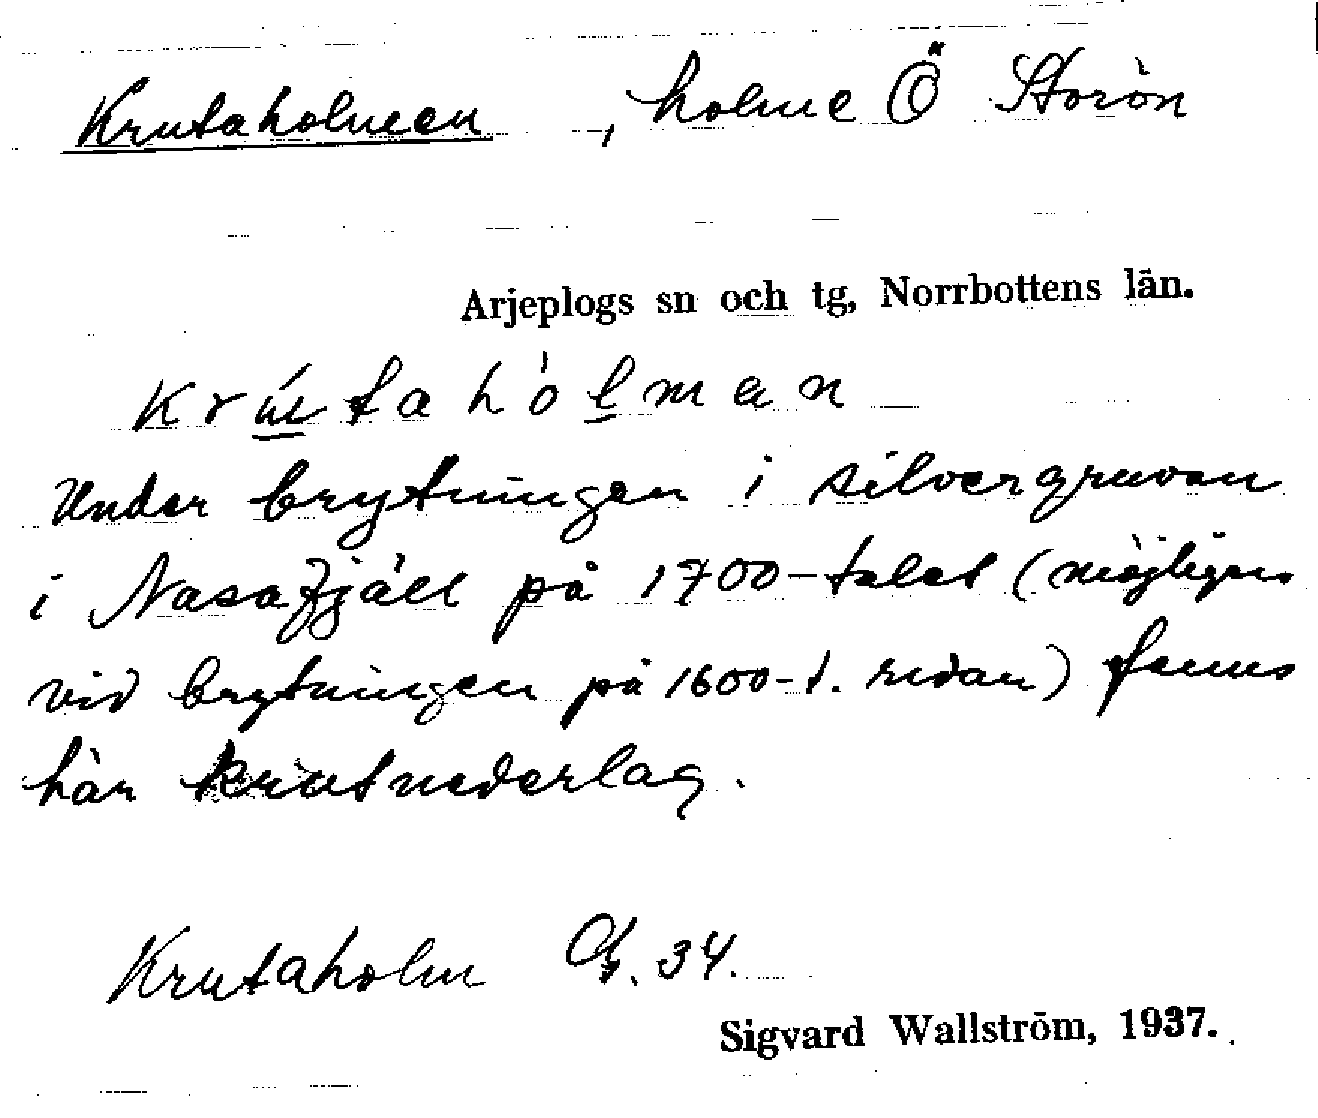 Krutaholmen, holme Ö Storön
Arjeplogs sn och tg, Norrbottens län.
krútahòlman
Under brytningen i silvergruvan
i Nasafjäll på 1700-talet (möjligen
vid brytningen på 1600-t. redan) fanns
här krutnederlag.
Krutaholm 34.
Sigvard Wallström, 1937.